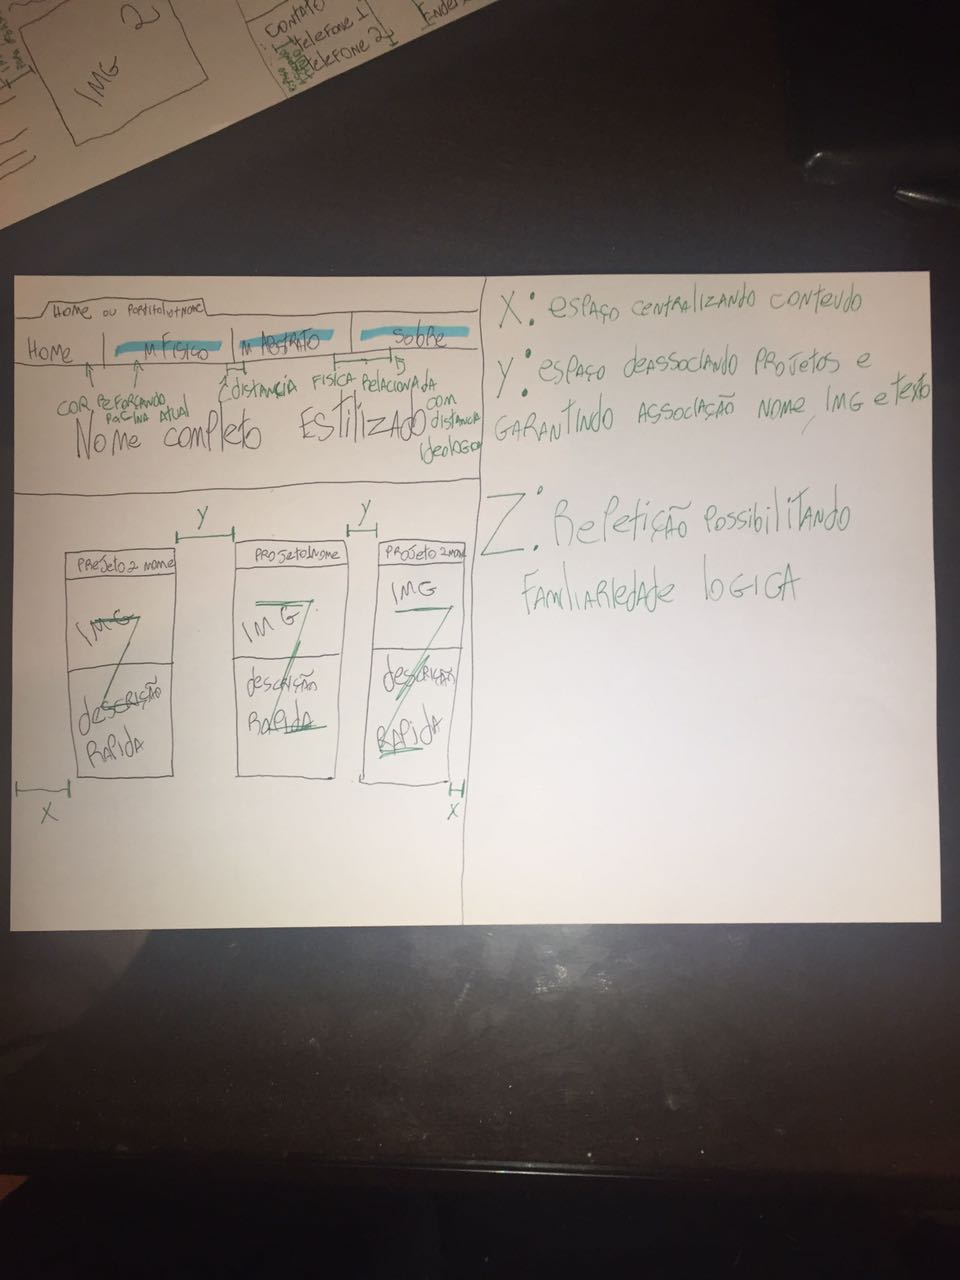 2
IMG
CONTATO
telefone 1
telefone 2
HOME OU
HOME
M FISICO
M ABSTRATO
SOBRE
COR REFORÇANDO
PAGINA ATUAL
DISTANCIA FISICA RELACIONADA
COM
DISTANCIA
Nome completo ESTILIZADO
Y
Y
PROJETO 2 NOME
PROJETO 1 NOME
PROJETO 2 NOME
IMG
IMG
IMG
DESCRIÇÃO
RAPIDA
DESCRIÇÃO
RAPIDA
DESCRIÇÃO
RAPIDA
X
X
X: ESPAÇO CENTRALIZANDO CONTEUDO
Y: ESPAÇO DEASSOCIANDO PROJETOS E
GARANTINDO ASSOCIAÇÃO NOME, IMG e texto
Z: REPETIÇÃO POSSIBILITANDO
FAMILIARIEDADE LOGICA